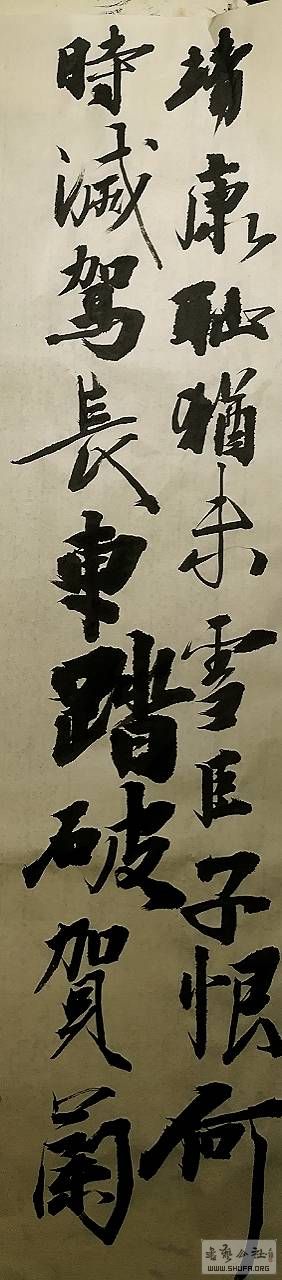 靖康耻猶未雪臣子恨何
時滅駕長車踏破賀蘭
WWW.SHUFA.ORG